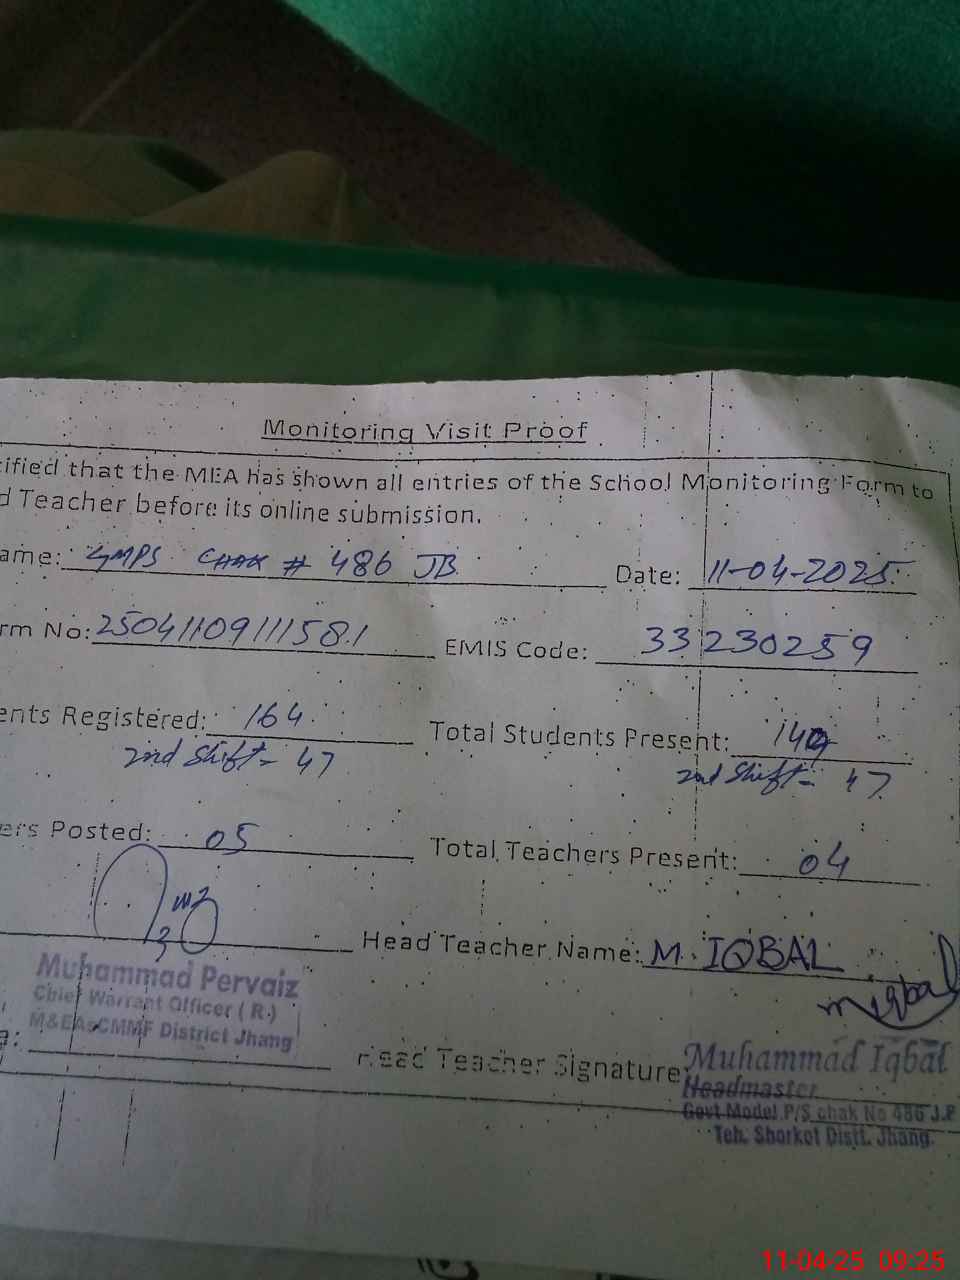 Monitoring Visit Proof
ified that the MEA has shown all entries of the School Monitoring Form to
d Teacher before its online submission.
ame: GMPS CHAK # 486 JB Date: 11-04-2025
rm No: EMIS Code: 33230259
ents Registered: 164 Total Students Present:
2nd Shift - 47 2nd Shift - 47
ers Posted: 05 Total Teachers Present: 04
Head Teacher Name: M. IQBAL
m iqbal
Muhammad Pervaiz
Chief Warrant Officer (R.)
M&EAsCMMF District Jhang
Head Teacher Signature
Muhammad Iqbal
Headmaster
Govt Model P/S chak No 486 J.B
Teh. Shorkot Distt. Jhang
11-04-25 09:25